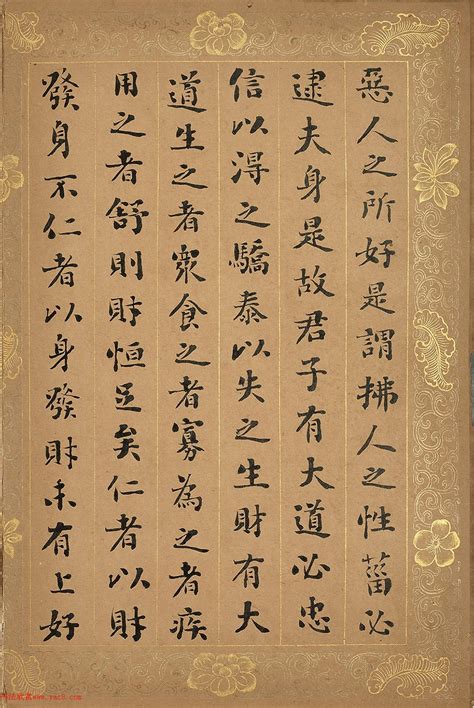 惡人之所好是謂拂人之性菑必
逮夫身是故君子有大道必忠
信以得之驕泰以失之生財有大
道生之者衆食之者寡為之者疾
用之者舒則財恒足矣仁者以財
發身不仁者以身發財未有上好
www.yac8.com